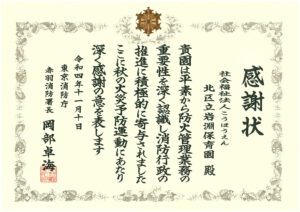 感謝状
社会福祉法人こうほうえん
北区立岩淵保育園 殿
貴園は平素から防火管理業務の
重要性を深く認識し消防行政の
推進に積極的に寄与されました
ここに秋の火災予防運動にあたり
深く感謝の意を表します
令和四年十一月十日
東京消防庁
赤羽消防署長 岡部卓海